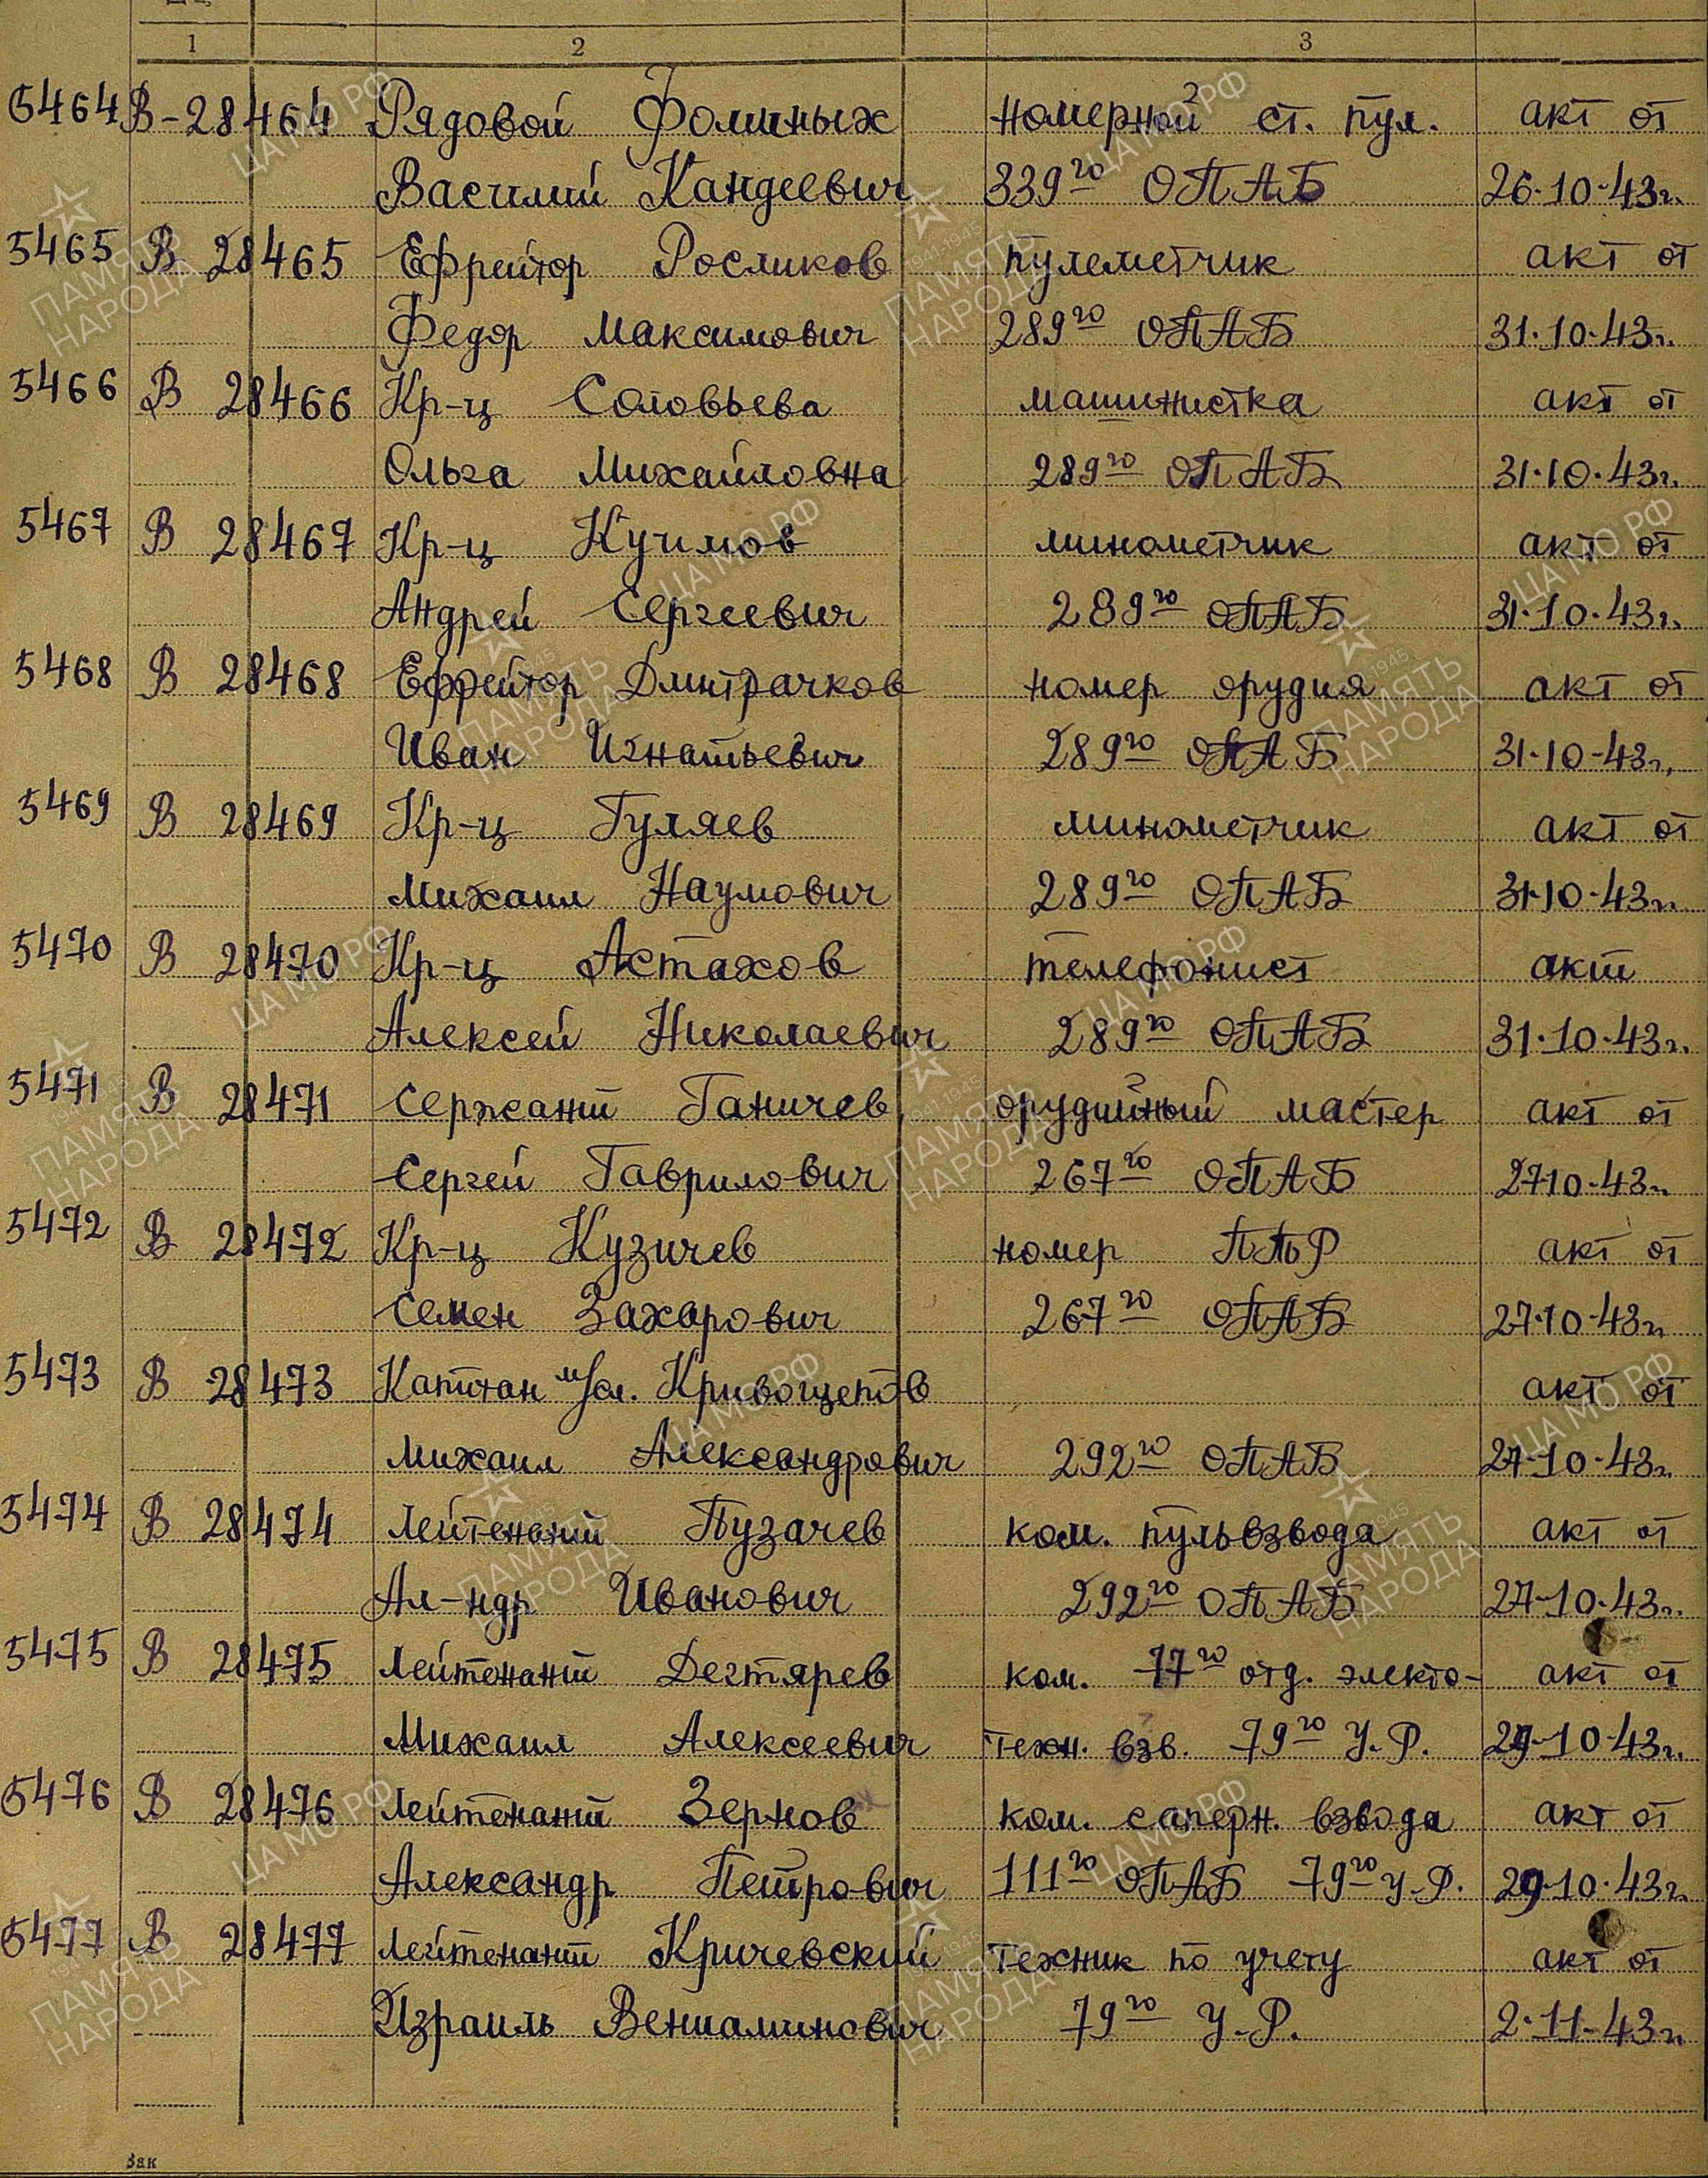 1 2 3
5464 В-28464 Рядовой Фоминых номерной ст. пул. акт от
Василий Кандеевич 339го ОПАБ 26.10-43г.
5465 В 28465 Ефрейтор Росликов пулеметчик акт от
Федор Максимович 289го ОПАБ 31.10-43г.
5466 В 28466 Кр-ц Соловьева машинистка акт от
Ольга Михайловна 289го ОПАБ 31.10.43г.
5467 В 28467 Кр-ц Кучмов минометчик акт от
Андрей Сергеевич 289го ОПАБ 31.10.43г.
5468 В 28468 Ефрейтор Дмитрачков номер орудия акт от
Иван Игнатьевич 289го ОПАБ 31-10-43г.
5469 В 28469 Кр-ц Гуляев минометчик акт от
Михаил Наумович 289го ОПАБ 31-10-43г.
5470 В 28470 Кр-ц Астахов телефонист акт
Алексей Николаевич 289го ОПАБ 31.10.43г.
5471 В 28471 Сержант Ганичев, орудийный мастер акт от
Сергей Гаврилович 267го ОПАБ 2710-43г.
5472 В 28472 Кр-ц Кузичев номер ПТР акт от
Семен Захарович 267го ОПАБ 27.10-43г
5473 В 28473 Капитан м/сл. Кривощепов акт от
Михаил Александрович 292го ОПАБ 27-10-43г.
5474 В 28474 Лейтенант Пузачев ком. пульвзвода акт от
Ал-ндр Иванович 292го ОПАБ 27-10.43г.
5475 В 28475 Лейтенант Дегтярев ком. 77го отд. электо- акт от
Михаил Алексеевич техн. взв. 79го У.Р. 29-10-43г.
5476 В 28476 Лейтенант Зернов ком. саперн. взвода акт от
Александр Петрович 111го ОПАБ 79го У.Р. 29-10.43г.
5477 В 28477 Лейтенант Кричевский Техник по учету акт от
Израиль Вениаминович 79го У.Р. 2.11-43г.
Зак